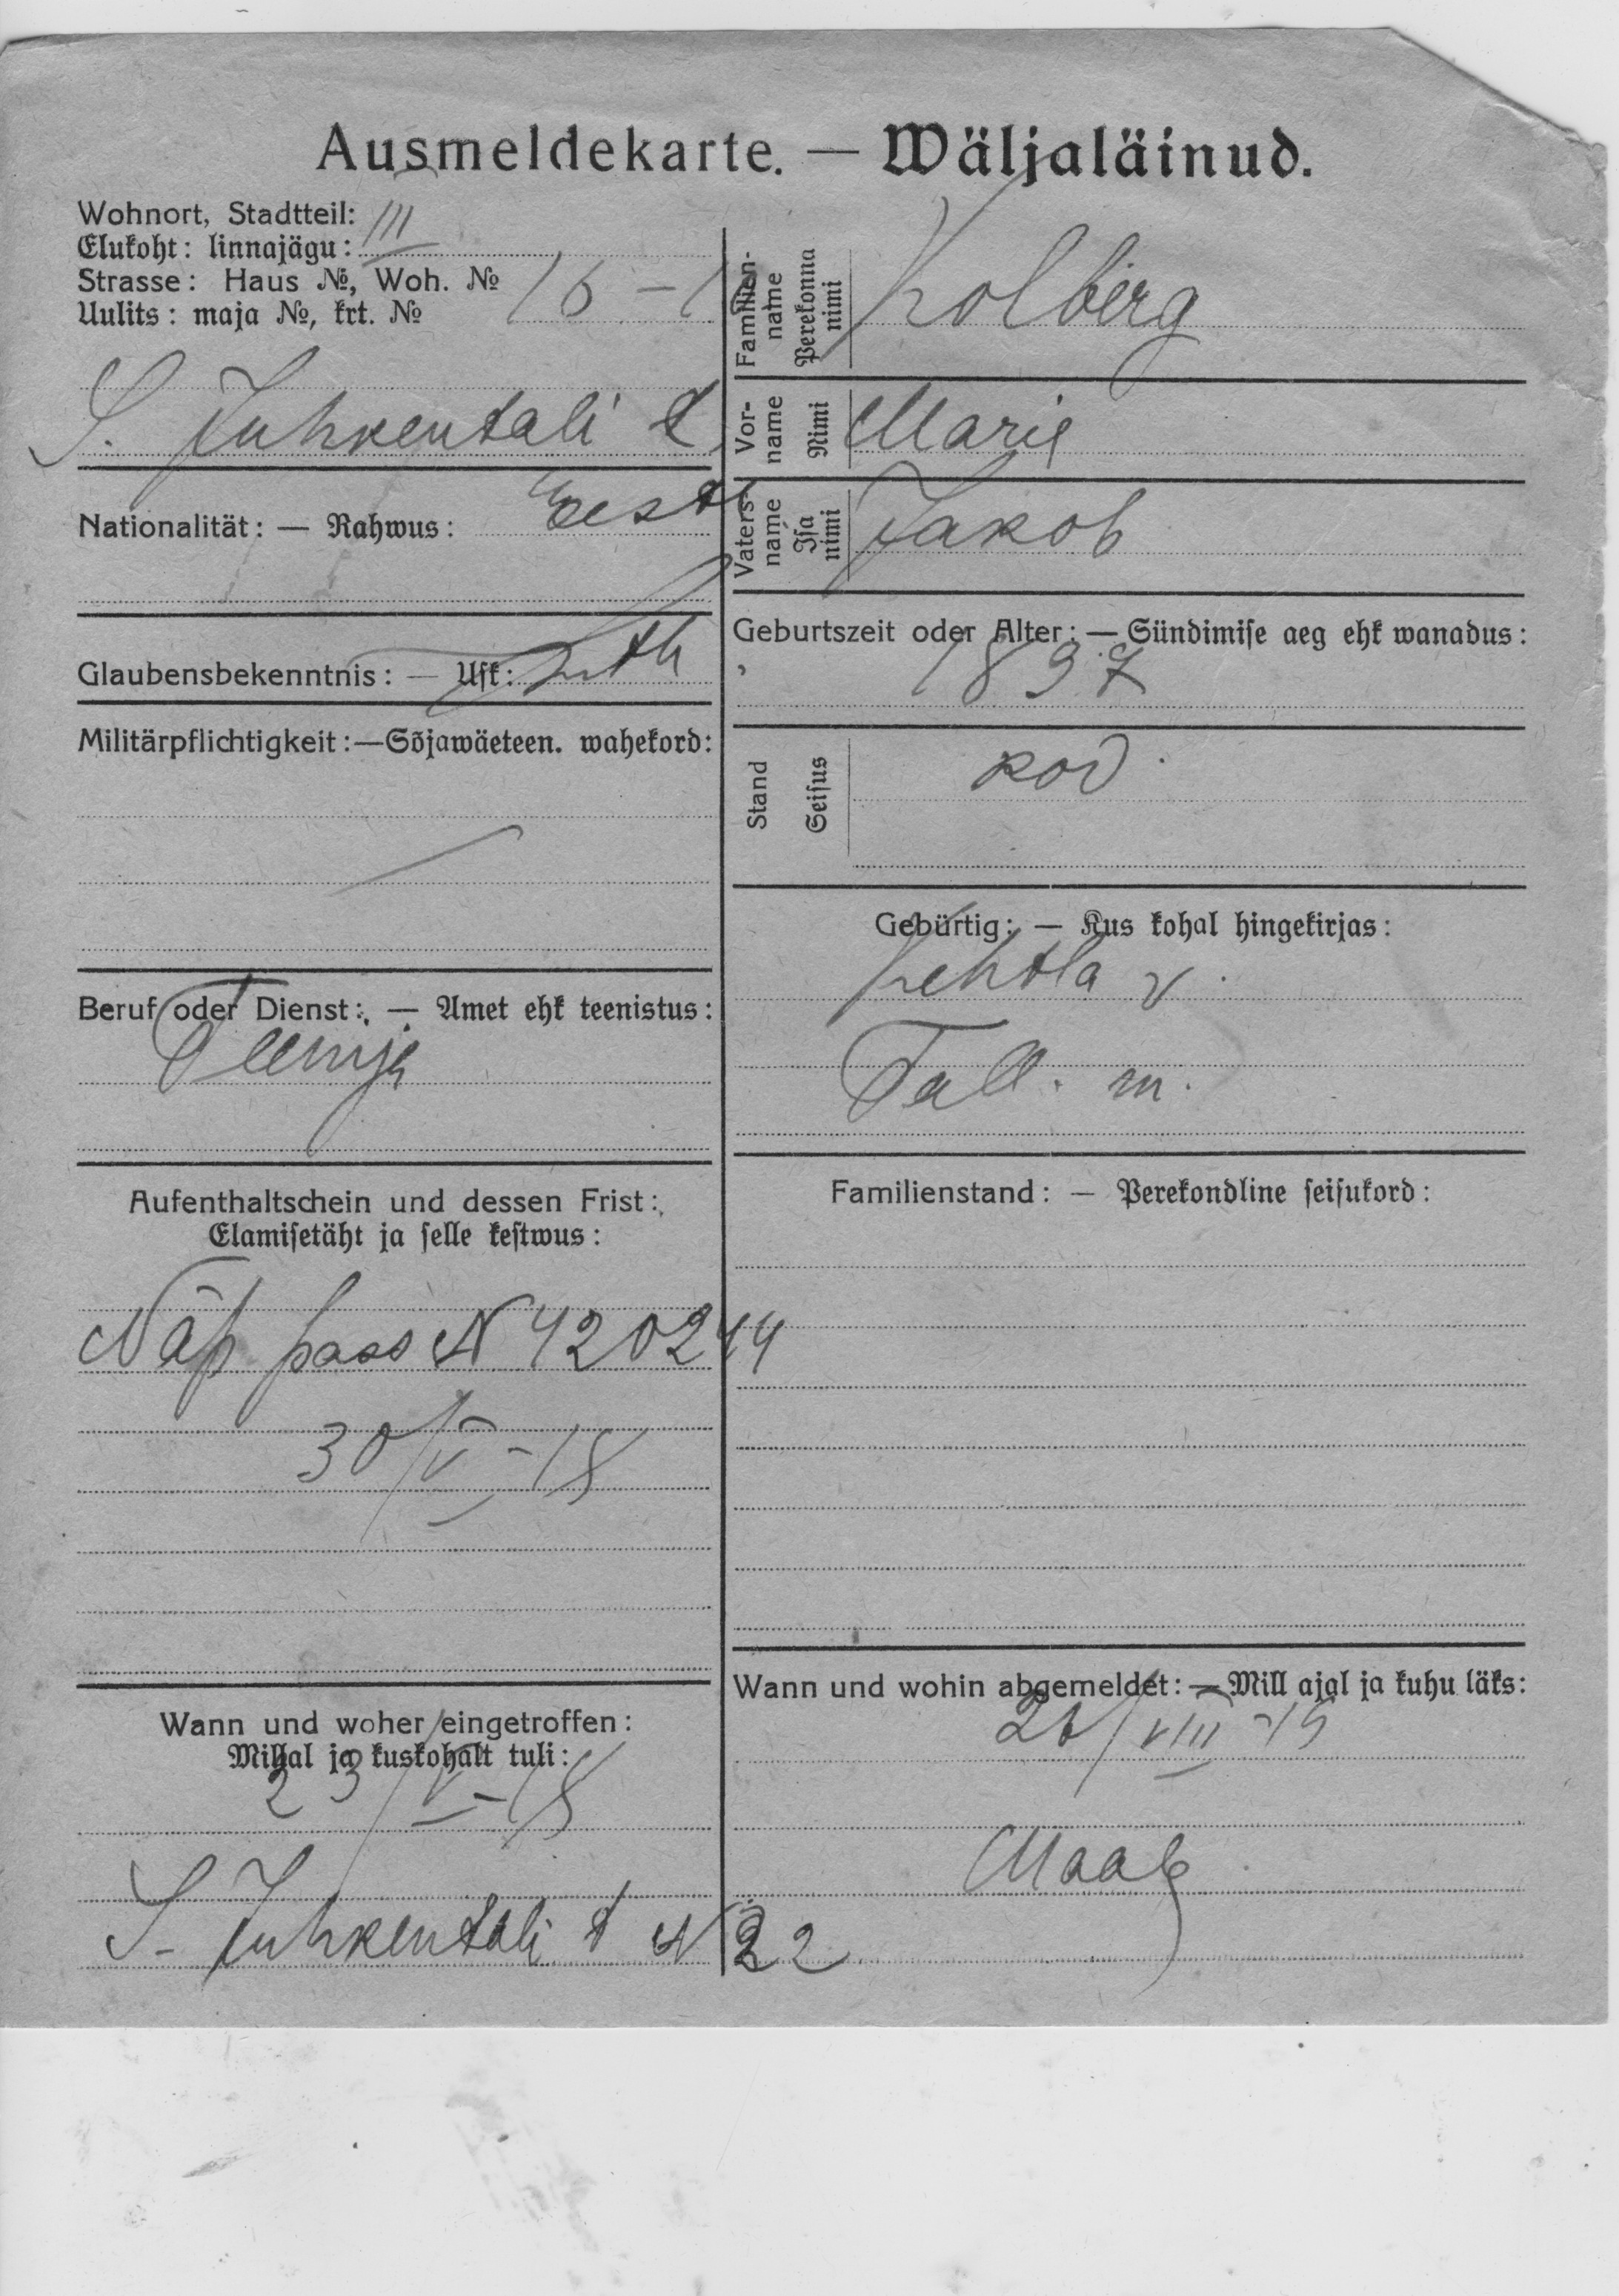 Ausmeldekarte. — Wäljaläinud.
Wohnort, Stadtteil: III
Elukoht: linnajägu:
Strasse: Haus №, Woh. №
Uulits: maja №, krt. № 16 -
S. Juhkentali t
Nationalität: — Rahwus: Eesti
Glaubensbekenntnis: — Usk: Luth
Militärpflichtigkeit: — Sõjawäeteen. wahekord:
Beruf oder Dienst: — Amet ehk teenistus:
Teenija
Aufenthaltschein und dessen Frist:
Elamisetäht ja selle kestwus:
Näp. pass N 420244
30/V - 18
Wann und woher eingetroffen:
Millal ja kuskohalt tuli:
23/V - 18
S. Juhkentali t N 22
Familienname
Perekonna nimi
Kolberg
Vorname
Nimi
Marie
Vatersname
Isa nimi
Jakob
Geburtszeit oder Alter: — Sündimise aeg ehk wanadus:
1897
Stand
Seisus
kod.
Gebürtig: — Kus kohal hingekirjas:
Lehtla v.
Tall. m.
Familienstand: — Perekondline seisukord:
Wann und wohin abgemeldet: — Mill ajal ja kuhu läks:
26/VIII - 19